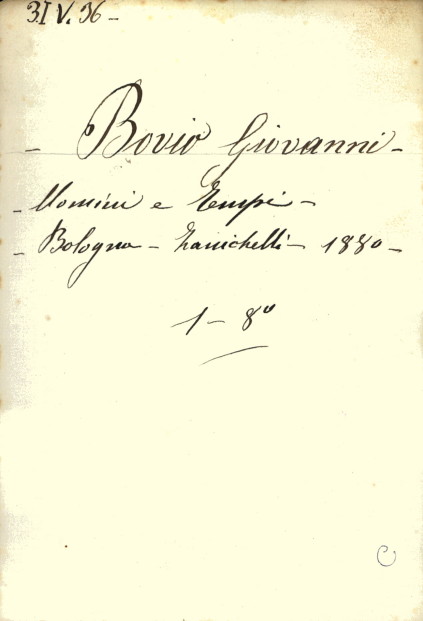 3I V. 36 -
- Bovio Giovanni -
- Uomini e Tempi -
- Bologna - Zanichelli - 1880 -
1 - 8º
C